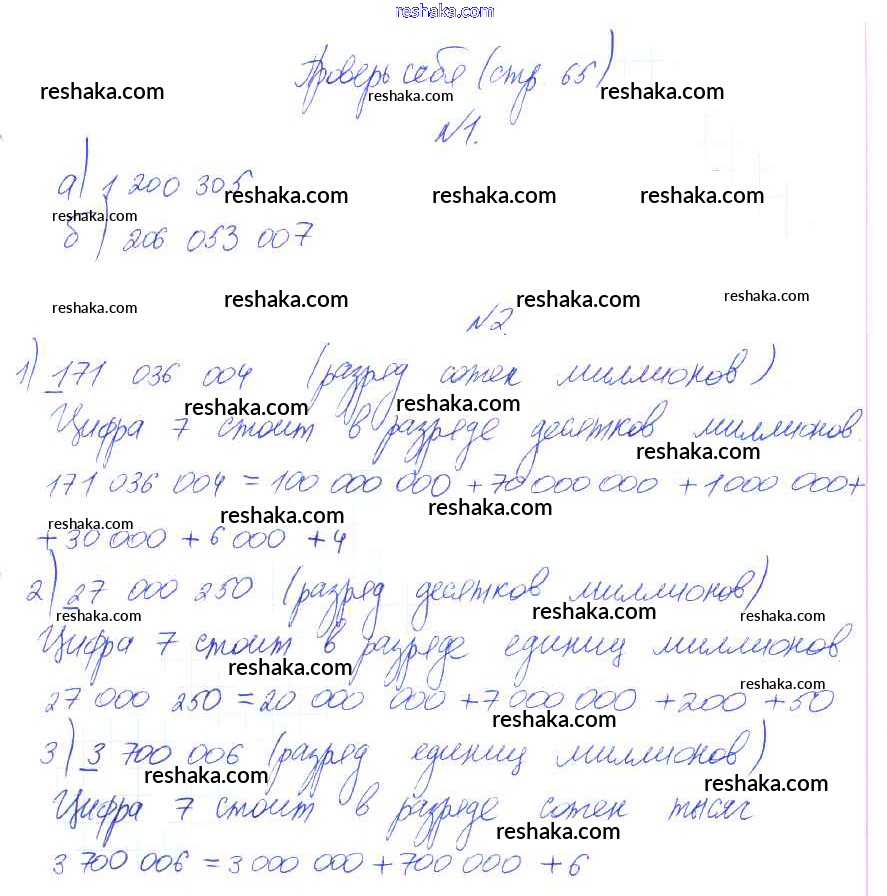 reshaka.com
Проверь себя (стр. 65)
reshaka.com reshaka.com reshaka.com
№1.
а) 1 200 305
reshaka.com reshaka.com reshaka.com
reshaka.com
б) 206 053 007
reshaka.com reshaka.com reshaka.com reshaka.com
№2.
1) 171 036 004 (разряд сотен миллионов)
reshaka.com reshaka.com
Цифра 7 стоит в разряде десятков миллионов.
reshaka.com
171 036 004 = 100 000 000 + 70 000 000 + 1000 000 +
reshaka.com reshaka.com reshaka.com
+ 30 000 + 6 000 + 4
2) 27 000 250 (разряд десятков миллионов)
reshaka.com reshaka.com reshaka.com
Цифра 7 стоит в разряде единиц миллионов
reshaka.com
reshaka.com
27 000 250 = 20 000 000 + 7 000 000 + 200 + 50
reshaka.com
3) 3 700 006 (разряд единиц миллионов)
reshaka.com reshaka.com
Цифра 7 стоит в разряде сотен тысяч
reshaka.com
3 700 006 = 3 000 000 + 700 000 + 6